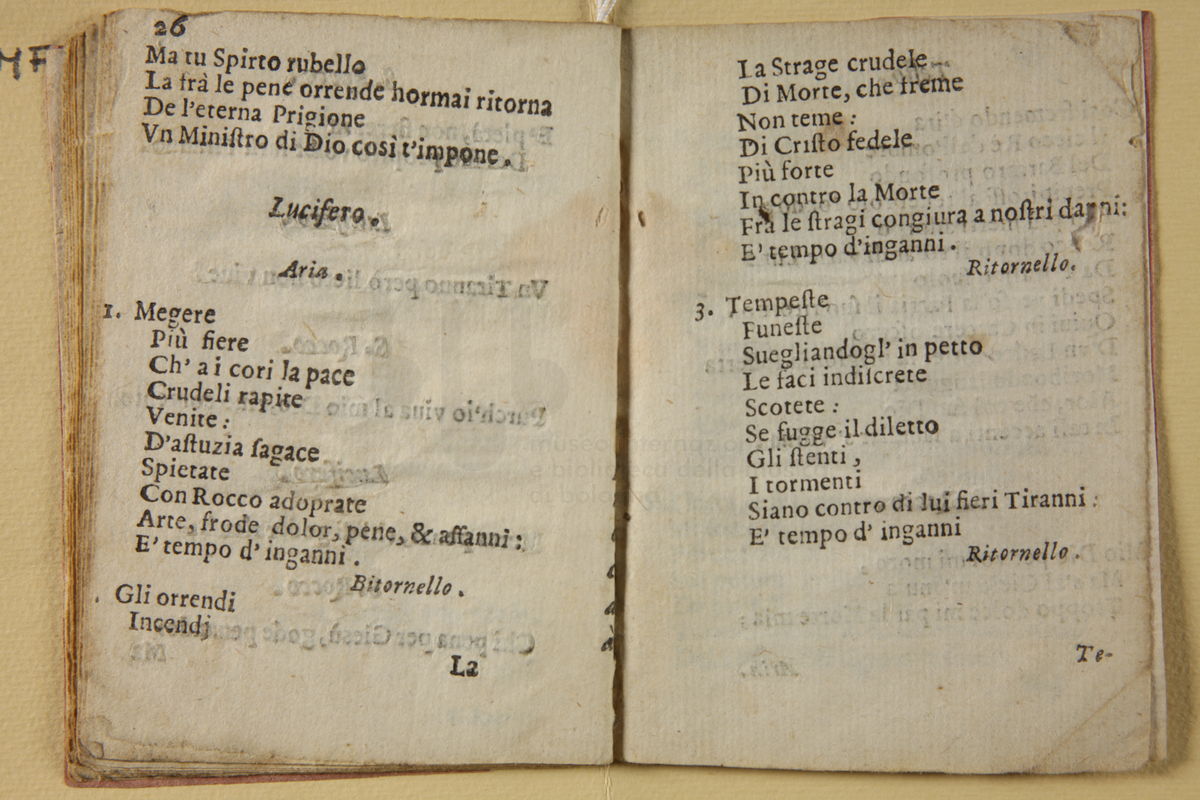 26
Ma tu Spirto rubello
La frà le pene orrende hormai ritorna
De l'eterna Prigione
Vn Miniſtro di Dio così t'impone.
Lucifero.
Aria.
1. Megere
Più fiere
Ch' a i cori la pace
Crudeli rapite
Venite:
D'aſtuzia ſagace
Spietate
Con Rocco adoprate
Arte, frode dolor, pene, & affanni:
E' tempo d' inganni.
Bitornello.
Gli orrendi
Incendj
La
La Strage crudele
Di Morte, che freme
Non teme:
Di Criſto fedele
Più forte
In contro la Morte
Frà le ſtragi congiura a noſtri danni:
E' tempo d'inganni.
Ritornello.
3. Tempeſte
Funeſte
Suegliandogl' in petto
Le faci indiſcrete
Scotete:
Se fugge il diletto
Gli ſtenti,
I tormenti
Siano contro di lui fieri Tiranni:
E' tempo d' inganni
Ritornello.
Te-